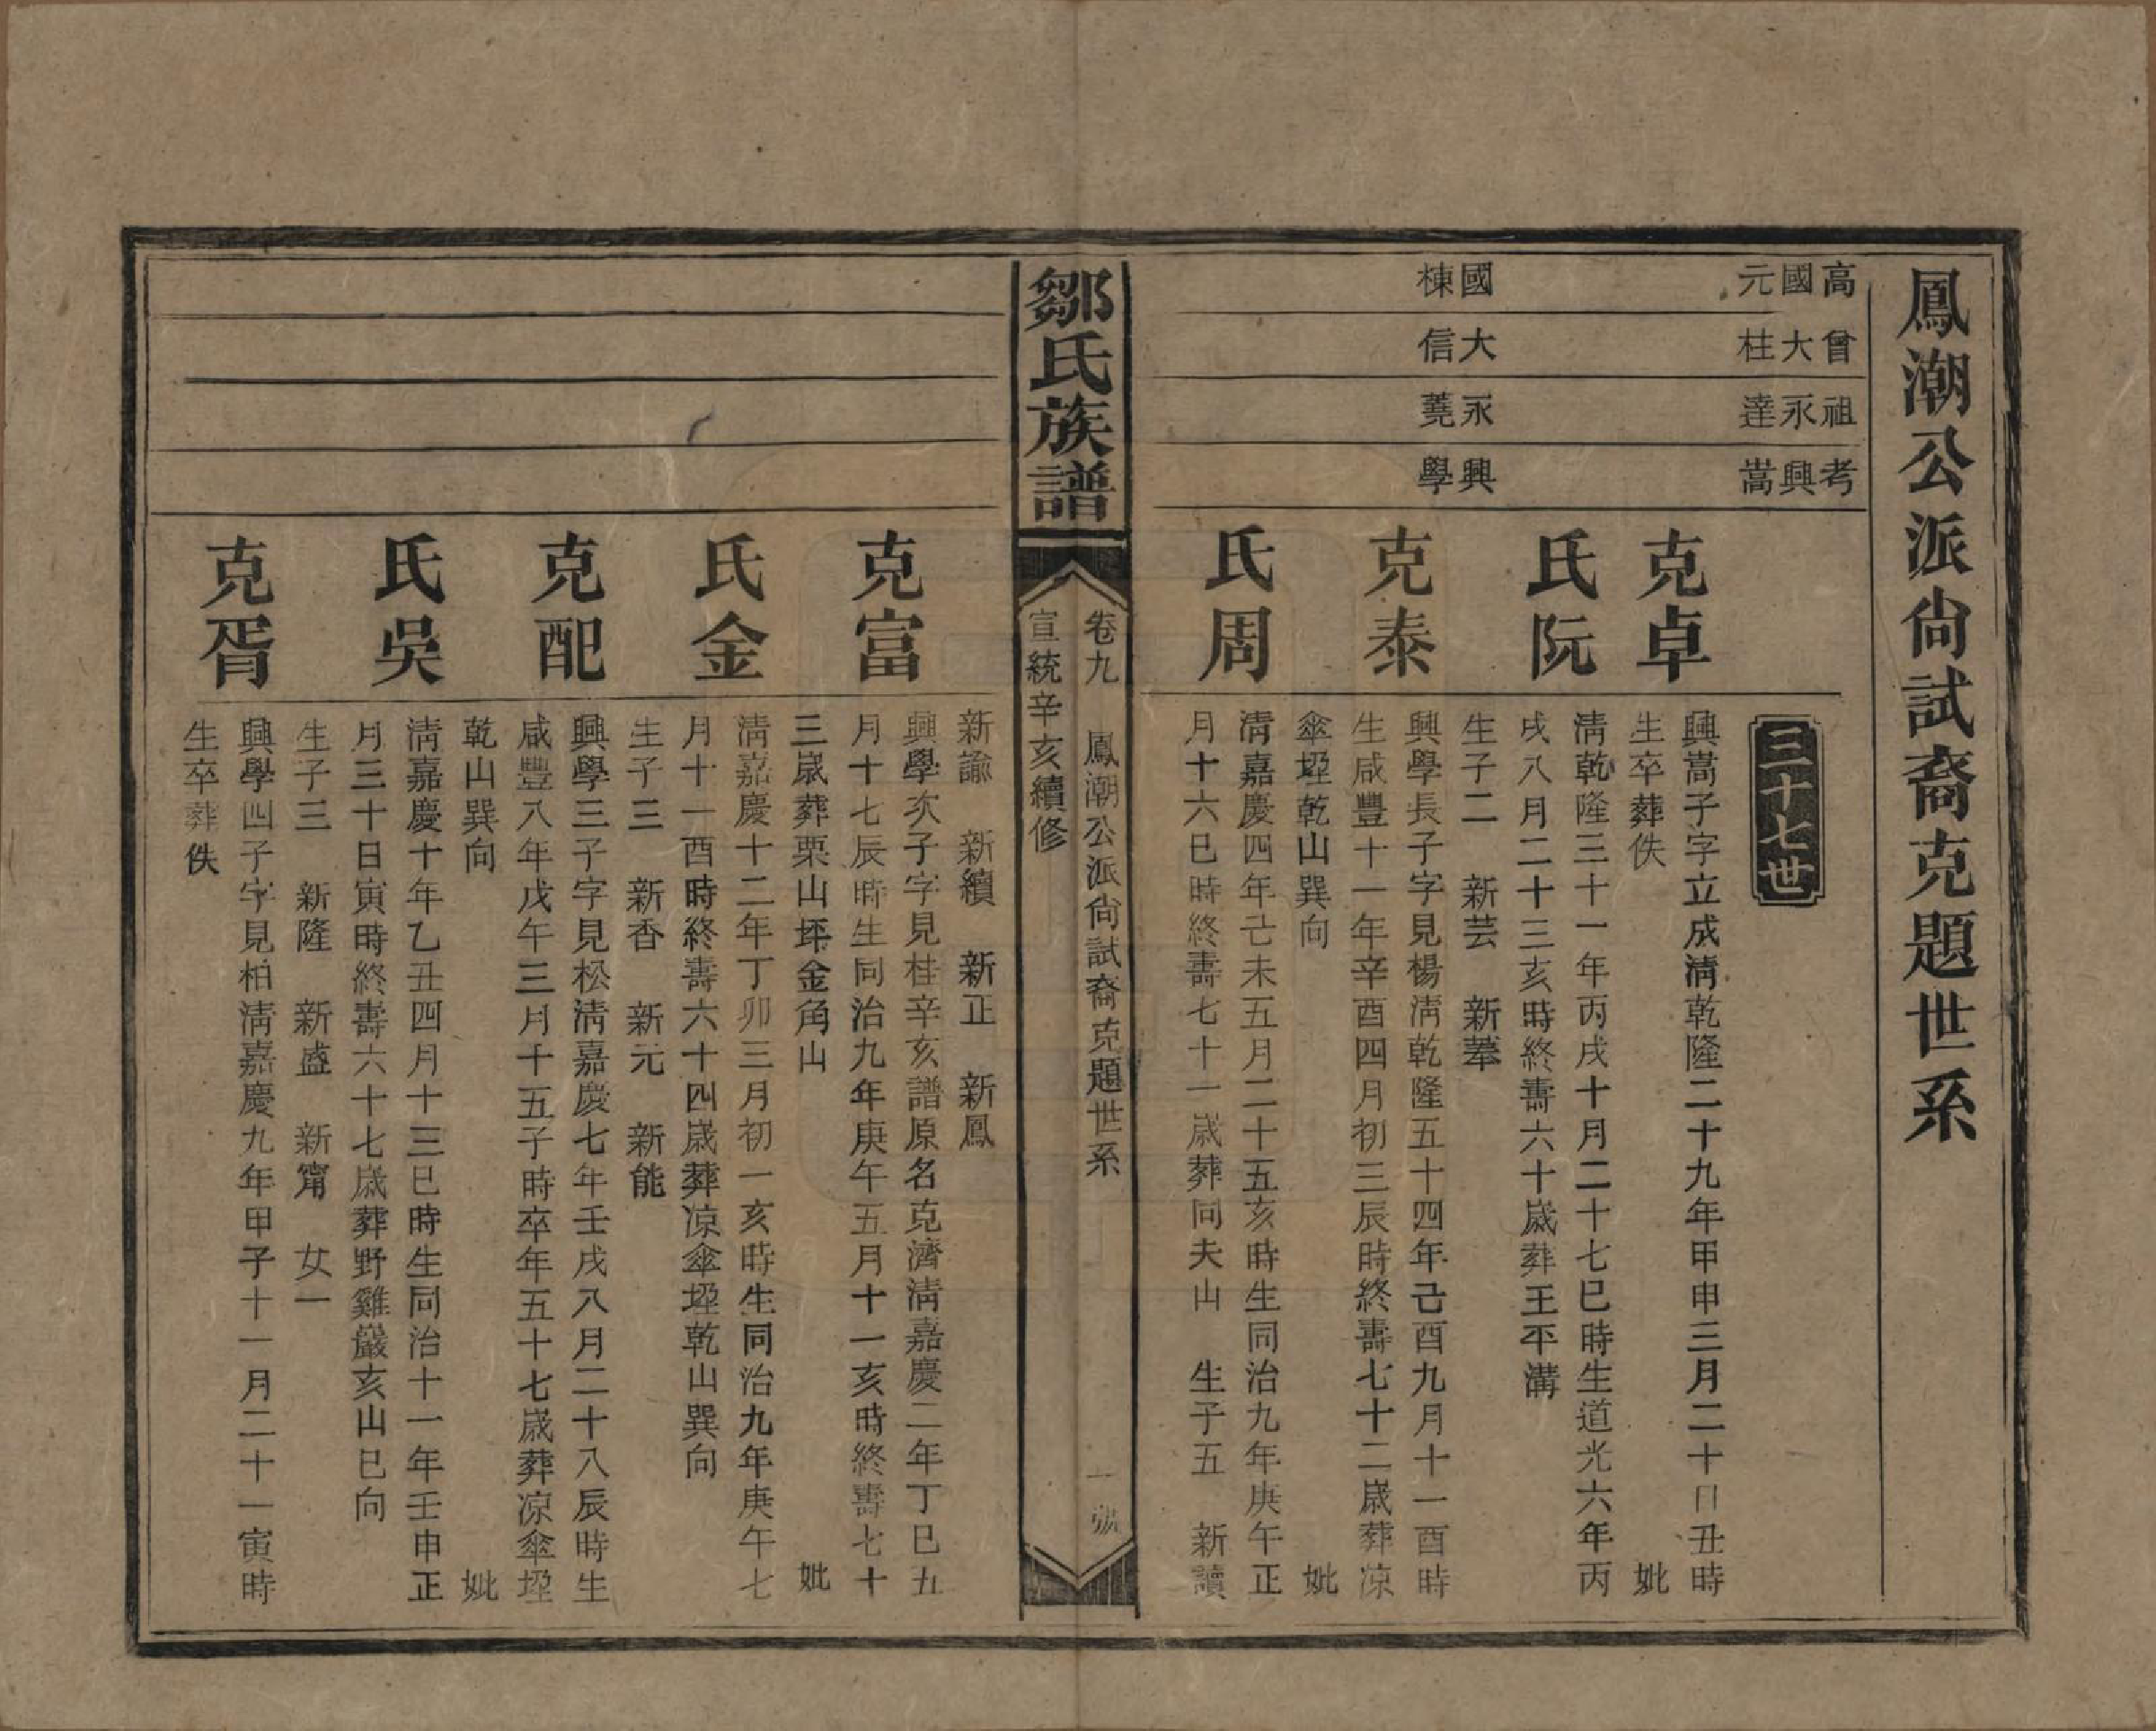 鳳潮公派尙試裔克題世系
高 國元
曾 大柱
祖 永達
考 興嵩
三十七世
克卓
興嵩子字立成淸乾隆二十九年甲申三月二十日丑時
生卒葬佚 妣
阮氏
淸乾隆三十一年丙戌十月二十七巳時生道光六年丙
戌八月二十三亥時終壽六十歲葬王平溝
生子二 新芸 新菶
國棟
大信
永蕘
興學
克泰
興學長子字見楊淸乾隆五十四年己酉九月十一酉時
生咸豐十一年辛酉四月初三辰時終壽七十二歲葬凉
傘埡乾山巽向 妣
周氏
淸嘉慶四年己未五月二十五亥時生同治九年庚午正
月十六巳時終壽七十一歲葬同夫山 生子五 新讀
鄒氏族譜
卷九 鳳潮公派尙試裔克題世系 一號
宣統辛亥續修
新諭 新續 新正 新鳳
克富
興學次子字見桂辛亥譜原名克濟淸嘉慶二年丁巳五
月十七辰時生同治九年庚午五月十一亥時終壽七十
三歲葬栗山坪金角山 妣
金氏
淸嘉慶十二年丁卯三月初一亥時生同治九年庚午七
月十一酉時終壽六十四歲葬凉傘埡乾山巽向
生子三 新香 新元 新能
克配
興學三子字見松淸嘉慶七年壬戌八月二十八辰時生
咸豐八年戊午三月十五子時卒年五十七歲葬凉傘埡
乾山巽向 妣
吳氏
淸嘉慶十年乙丑四月十三巳時生同治十一年壬申正
月三十日寅時終壽六十七歲葬野雞巖亥山巳向
生子三 新隆 新盛 新甯 女一
克胥
興學四子字見柏淸嘉慶九年甲子十一月二十一寅時
生卒葬佚